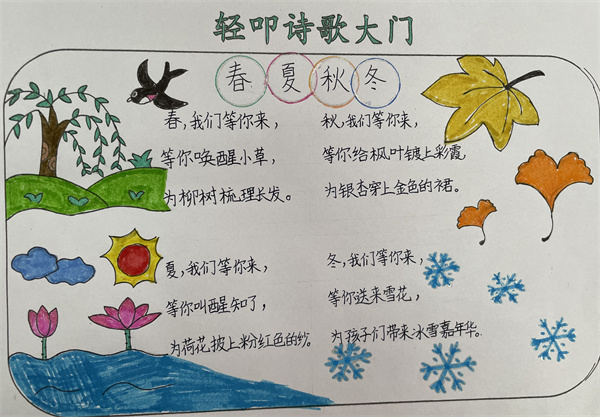 轻叩诗歌大门
春夏秋冬
春，我们等你来，
等你唤醒小草，
为柳树梳理长发。
夏，我们等你来，
等你叫醒知了，
为荷花披上粉红色的纱。
秋，我们等你来，
等你给枫叶镀上彩霞，
为银杏穿上金色的裙。
冬，我们等你来，
等你送来雪花，
为孩子们带来冰雪嘉年华。